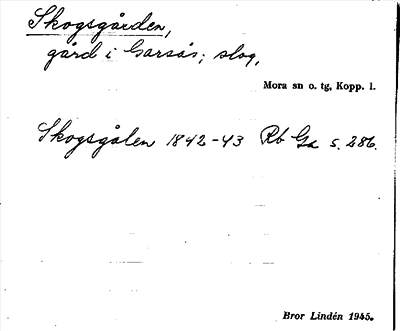 Skogsgården,
gård i Garsås; slog,
Mora sn o. tg, Kopp. l.
Skogsgålen 1842-43 Rb Ga s. 286.
Bror Lindén 1945.